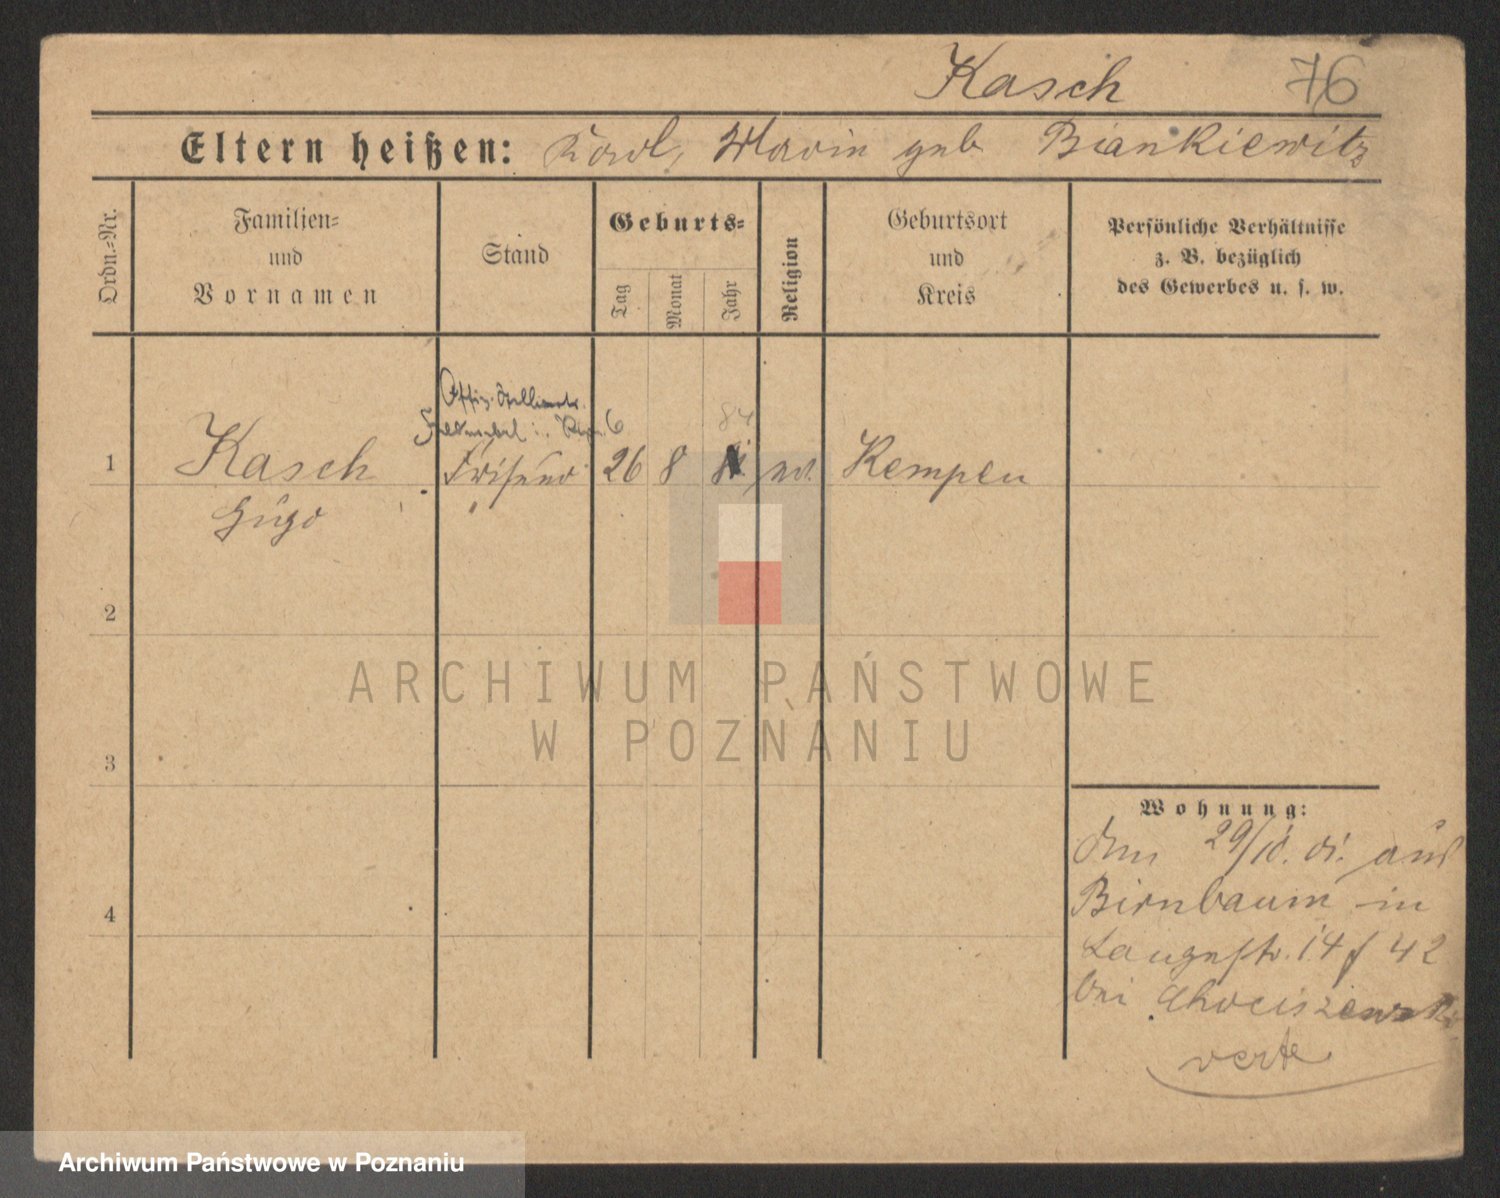 Kasch 76
Eltern heißen: Karl, Maria geb Biankiewitz
Ordn.-Nr.
Familien-
und
Vornamen
Stand
Geburts-
Tag
Monat
Jahr
Religion
Geburtsort
und
Kreis
Persönliche Verhältnisse
z. B. bezüglich
des Gewerbes u. s. w.
Offiz. Stellvertr.
Feldwebel 6
84
1 Kasch Friseur 26 8 Kempen
Hugo
2
3
4
Wohnung:
den 29/10. aus
Birnbaum in
Langestr. 14 42
bei
verte
ARCHIWUM PAŃSTWOWE
W POZNANIU
Archiwum Państwowe w Poznaniu